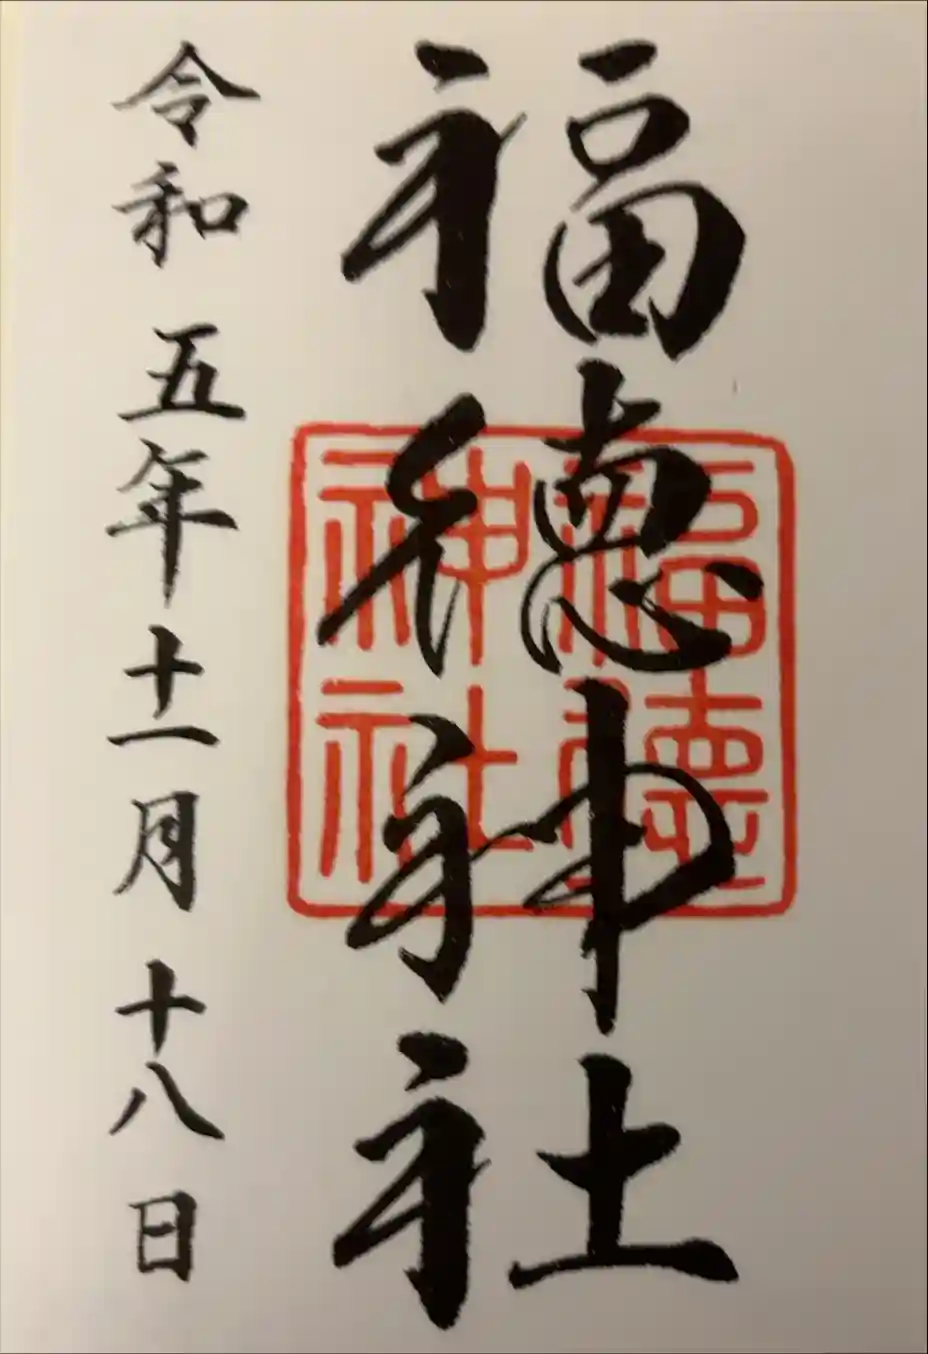 福徳神社
福徳神社
令和五年十一月十八日